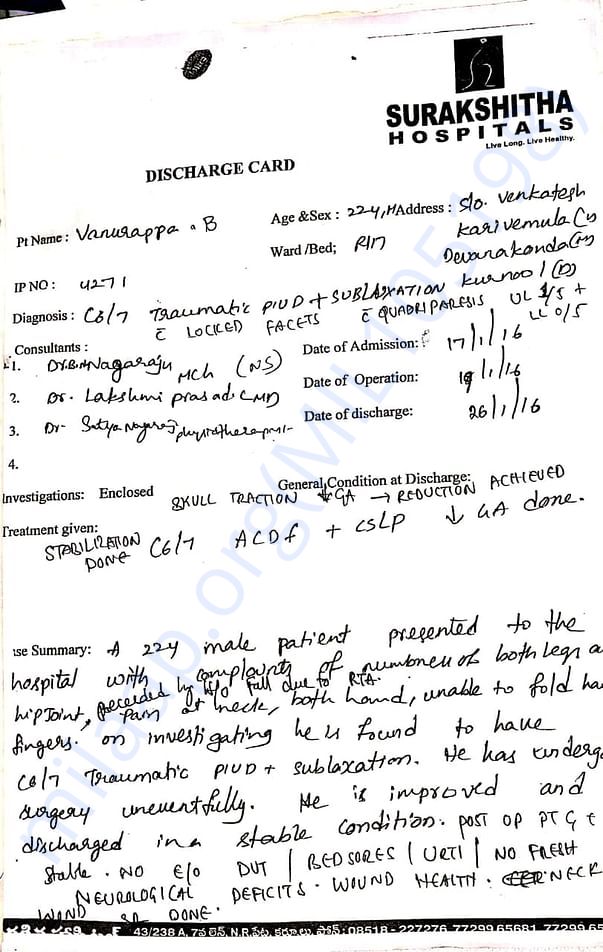 SURAKSHITHA
HOSPITALS
Live Long. Live Healthy.
DISCHARGE CARD
Pt Name : Vanurappa . B
Age &Sex : 22y, M
Address : S/o. Venkatesh
Karivemula (v)
Devanakonda (M)
Kurnool (D)
Ward /Bed;
IP NO : 4271
Diagnosis : C6/7 Traumatic PIVD + SUBLAXATION
c̄ LOCKED FACETS c̄ QUADRIPARESIS UL 3/5 +
LL 0/5
Consultants :
1. Nagaraju MCh (NS)
2. Dr. Lakshmi prasad
3. Dr- physiotherapist-
4.
Date of Admission: 17/1/16
Date of Operation: /1/16
Date of discharge: 26/1/16
Investigations: Enclosed
General Condition at Discharge:
SKULL TRACTION ↓ GA → REDUCTION ACHIEVED
Treatment given:
STABILIZATION DONE C6/7 ACDF + CSLP ↓ GA done.
use Summary: A 22y male patient presented to the
hospital with complaints of numbness of both legs a
hip Joint, preceeded by H/o fall due to RTA.
pain at neck, both hand, unable to fold ha
fingers. on investigating he is found to have
C6/7 Traumatic PIVD + sublaxation. He has underg
surgery uneventfully. He is improved and
discharged in a stable condition. POST OP PT
stable. NO E/O DVT | BEDSORES | URTI | NO FRESH
NEUROLOGICAL DEFICITS. WOUND HEALTHY. NECK
WOUND SR DONE.
43/238 A, N.R. 08518 - 227276, 77299 65681, 77299 65
milaap.org(MIL1105198)